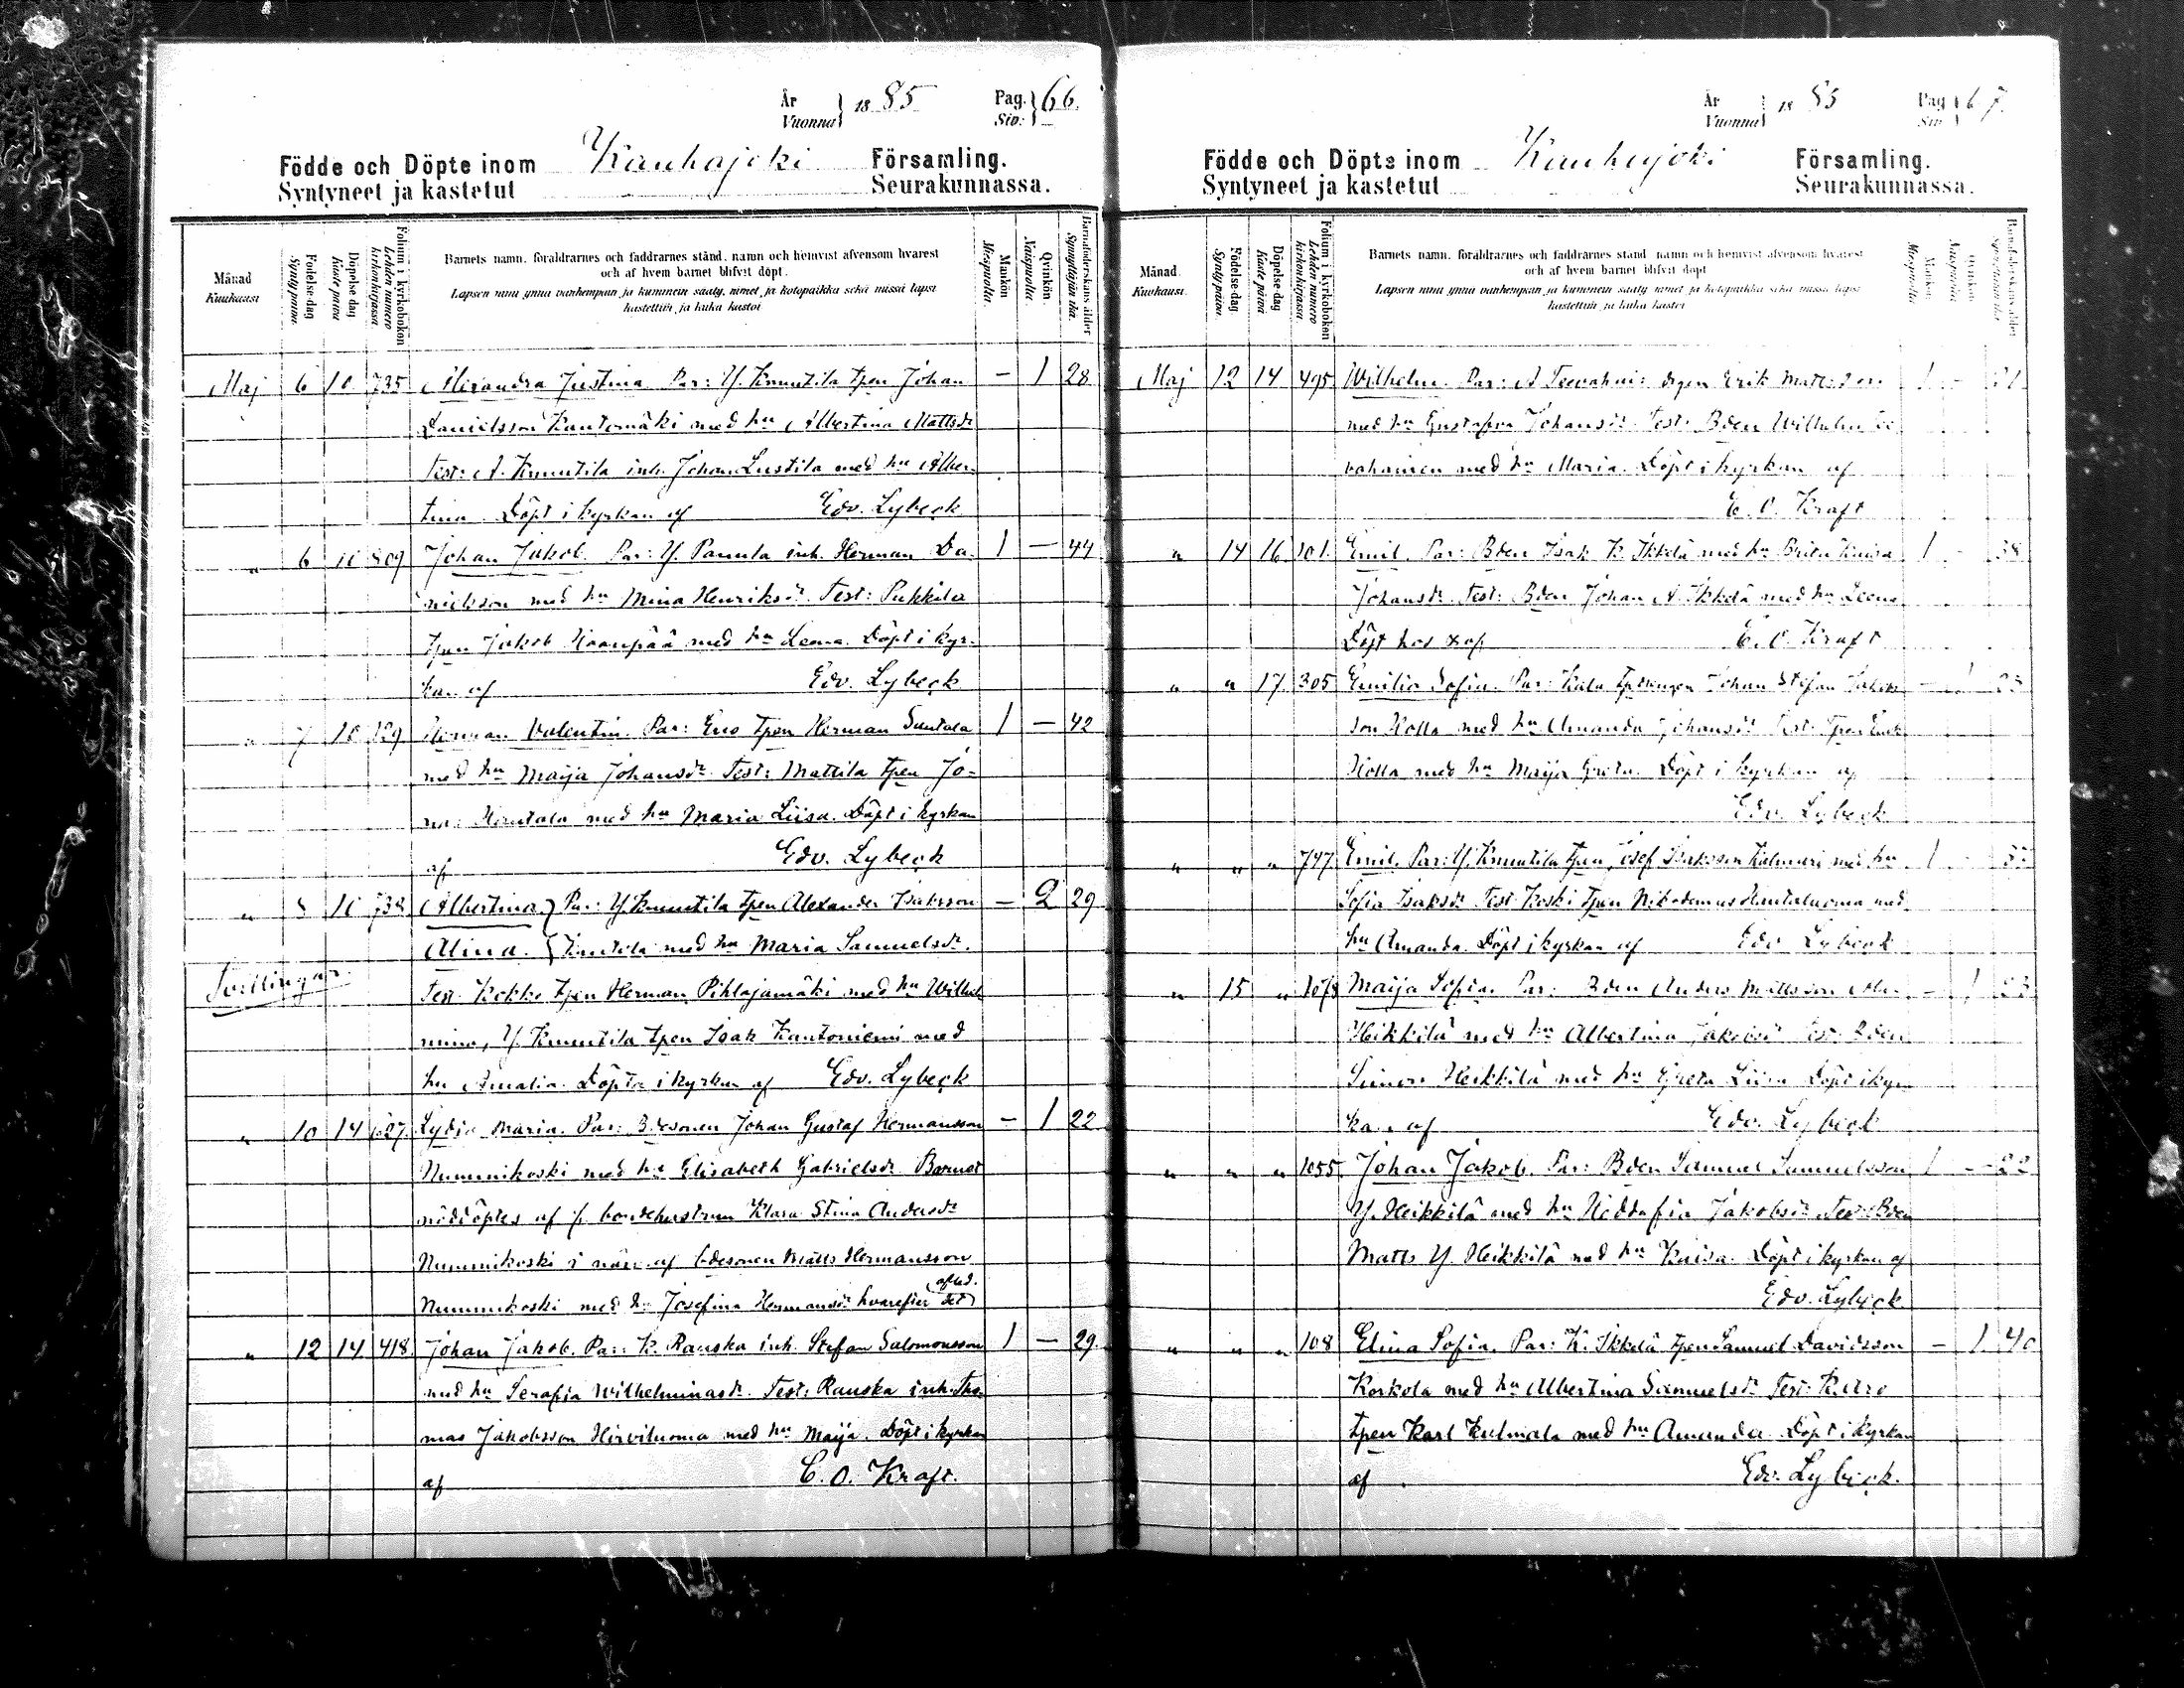 År
Vuonna } 18 85 Pag. } 66.
Siv:
Födde och Döpte inom Kauhajoki Församling.
Syntyneet ja kastetut Seurakunnassa.
Månad
Kuukausi
Födelse-dag
Syntypäivä.
Döpelse-dag
Kaste-päivä
Folium i kyrkoboken
Lehden numero kirkonkirjassa.
Barnets namn, föräldrarnes och faddrarnes stånd, namn och hemvist äfvensom hvarest
och af hvem barnet blifvit döpt.
Lapsen nimi ynnä vanhempain ja kummein sääty, nimet ja kotopaikka sekä missä lapsi
kastettiin ja kuka kastoi
Mankön
Miespuolia.
Qvinkön.
Naispuolia.
Barnaföderskans ålder
Synnyttäjän ikä.
Maj 6 10 735 Alexandra Justina. Par: Y. Knuutila tpen Johan — 1 28
Danielsson Kantomäki med hu Albertina Mattsdr
Test: A. Knuutila inh. Johan Lustila med hu Alber-
tina. Döpt i kyrkan af Edv. Lybeck
" 6 10 809 Johan Jakob. Par: Y. Panula inh. Herman Da- 1 — 44
nielsson med hu Mina Henriksdr. Test: Pukkila
tpen Jakob Haanpää med hu Leena. Döpt i kyr-
kan af Edv. Lybeck
" 7 10 129 Herman Valentin. Par: Eno tpen Herman Suutala 1 — 42
med hu Maija Johansdr. Test: Mattila tpen Jo-
nas Hautala med hu Maria Liisa. Döpt i kyrkan
af Edv. Lybeck
" 8 10 738 Albertina } Par: Y. Knuutila tpen Alexander Isaksson — 2 29
Alina. } Kantola med hu Maria Samuelsdr.
Tvillingar.
Test. Kokko tpen Herman Pihlajamäki med hu Wilhel-
mina, Y. Knuutila tpen Isak Kantoniemi med
hu Amalia. Döpta i kyrkan af Edv. Lybeck
" 10 14 627 Lydia Maria. Par: Bdesonen Johan Gustaf Hermansson — 1 22
Nummikoski med hu Elisabeth Gabrielsdr. Barnet
nöddöptes af f. bondehustrun Klara Stina Andersdr
Nummikoski i närv. af bdesonen Matts Hermansson
Nummikoski med hu Josefina Hermansdr hvarefter det
afled.
" 12 14 418 Johan Jakob. Par: K. Rauska inh. Stefan Salomonsson 1 — 29.
med hu Serafia Wilhelminasdr. Test: Rauska inh. Tho-
mas Jakobsson Hirviluoma med hu Maija. Döpt i kyrkan
af C. O. Kraft.
År
Vuonna } 18 85 Pag } 67.
Siv
Födde och Döpte inom Kauhajoki Församling.
Syntyneet ja kastetut Seurakunnassa.
Månad.
Kuukausi.
Födelse-dag.
Syntypäivä.
Döpelse-dag
Kaste päivä
Folium i kyrkoboken
Lehden numero kirkonkirjassa.
Barnets namn, föräldrarnes och faddrarnes stånd namn och hemvist äfvensom hvarest
och af hvem barnet blifvit döpt
Lapsen nimi ynnä vanhempain ja kummein sääty nimet ja kotopaikka sekä missä lapsi
kastettiin ja kuka kastoi
Maj 12 14 495 Wilhelm. Par: A Teevahai Erik Mattsson 1 —
med hu Gustafva Johansdr. Test: Bden Wilhelm Tee
vahainen med hu Maria. Döpt i kyrkan af
C. O. Kraft
" 14 16 101. Emil. Par: Bden Isak K. Ikkelä med hu Brita Kaisa 1 - 38
Johansdr. Test: Bden Johan A. Ikkelä med hu Leena
Döpt hos af C. O. Kraft
" " 17 305 Emilia Sofia. Par: Johan Stefan Jakobs — 1
son Kolla med hu Amanda Johansdr Test: tpen
Kolla med hu Maija Greta. Döpt i kyrkan af
Edv. Lybeck
" " " 747 Emil. Par: Y. Knuutila tpen Josef Isaksson med hu 1 -
Sofia Isaksdr Test: Koski tpen Nikodemus Hautaluoma med
hu Amanda. Döpt i kyrkan af Edv Lybeck
" 15 " 1078 Maija Sofia. Par: Bden Anders Mattsson — 1
Heikkilä med hu Albertina Jakobsdr Test: Bden
Simon Heikkilä med hu Greta Liisa Döpt i kyr
kan af Edv. Lybeck
" " " 1055. Johan Jakob. Par: Bden Samuel Samuelsson 1 — 22
Y. Heikkilä med hu Heddafia Jakobsdr Test: Bden
Matts Y. Heikkilä med hu Kaisa. Döpt i kyrkan af
Edv. Lybeck
" " " 108 Elina Sofia. Par: K. Ikkelä tpen Samuel Davidsson — 1 40
Korkola med hu Albertina Samuelsdr Test: K. Aro
tpen Karl Kulmala med hu Amanda. Döpt i kyrkan
af Edv. Lybeck.